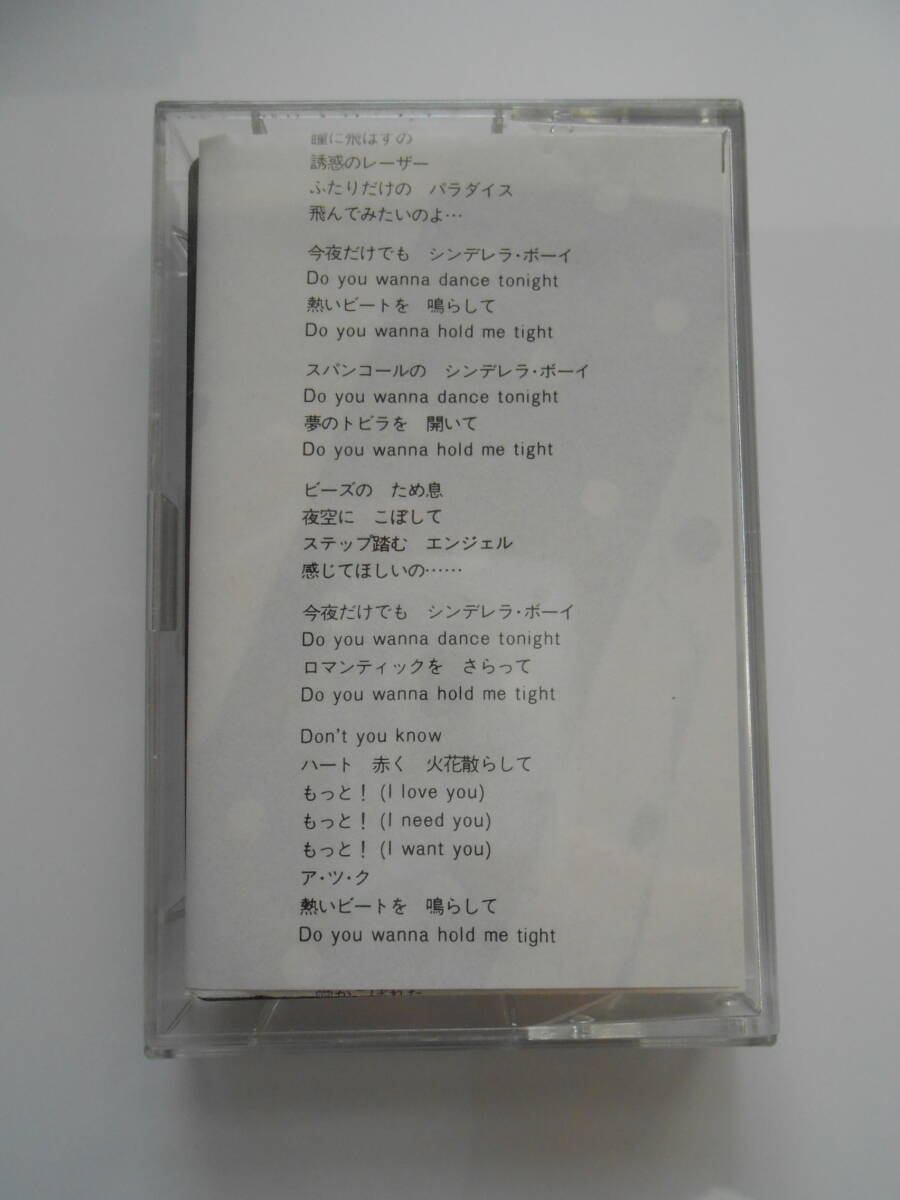 瞳に飛ばすの
誘惑のレーザー
ふたりだけの　パラダイス
飛んでみたいのよ…
今夜だけでも　シンデレラ・ボーイ
Do you wanna dance tonight
熱いビートを　鳴らして
Do you wanna hold me tight
スパンコールの　シンデレラ・ボーイ
Do you wanna dance tonight
夢のトビラを　開いて
Do you wanna hold me tight
ビーズの　ため息
夜空に　こぼして
ステップ踏む　エンジェル
感じてほしいの……
今夜だけでも　シンデレラ・ボーイ
Do you wanna dance tonight
ロマンティックを　さらって
Do you wanna hold me tight
Don't you know
ハート　赤く　火花散らして
もっと！(I love you)
もっと！(I need you)
もっと！(I want you)
ア・ツ・ク
熱いビートを　鳴らして
Do you wanna hold me tight